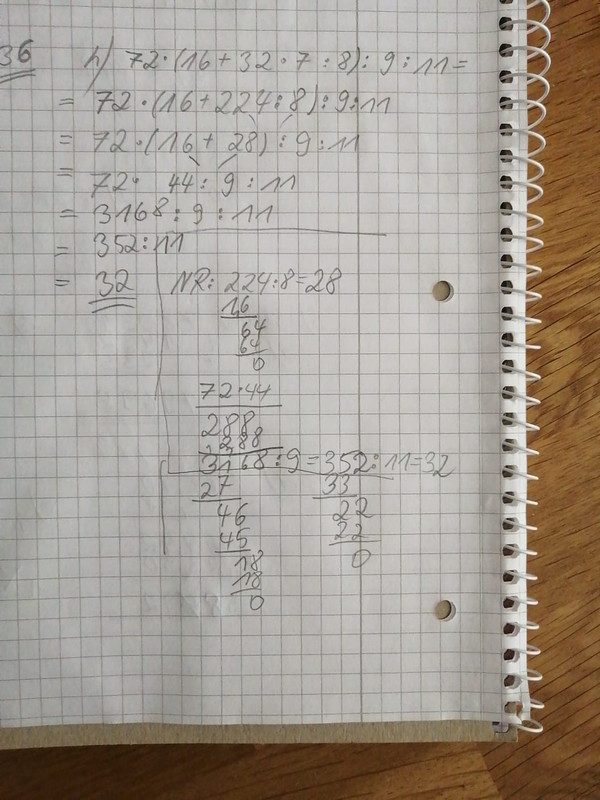 36 h) 72·(16+32·7:8):9:11=
= 72·(16+224:8):9:11
= 72·(16+28):9:11
= 72· 44:9:11
= 3168:9:11
= 352:11
= 32
NR: 224:8=28
16
64
64
0
72·44
288
288
3168:9=352:11=32
27 33
46 22
45 22
18 0
18
0